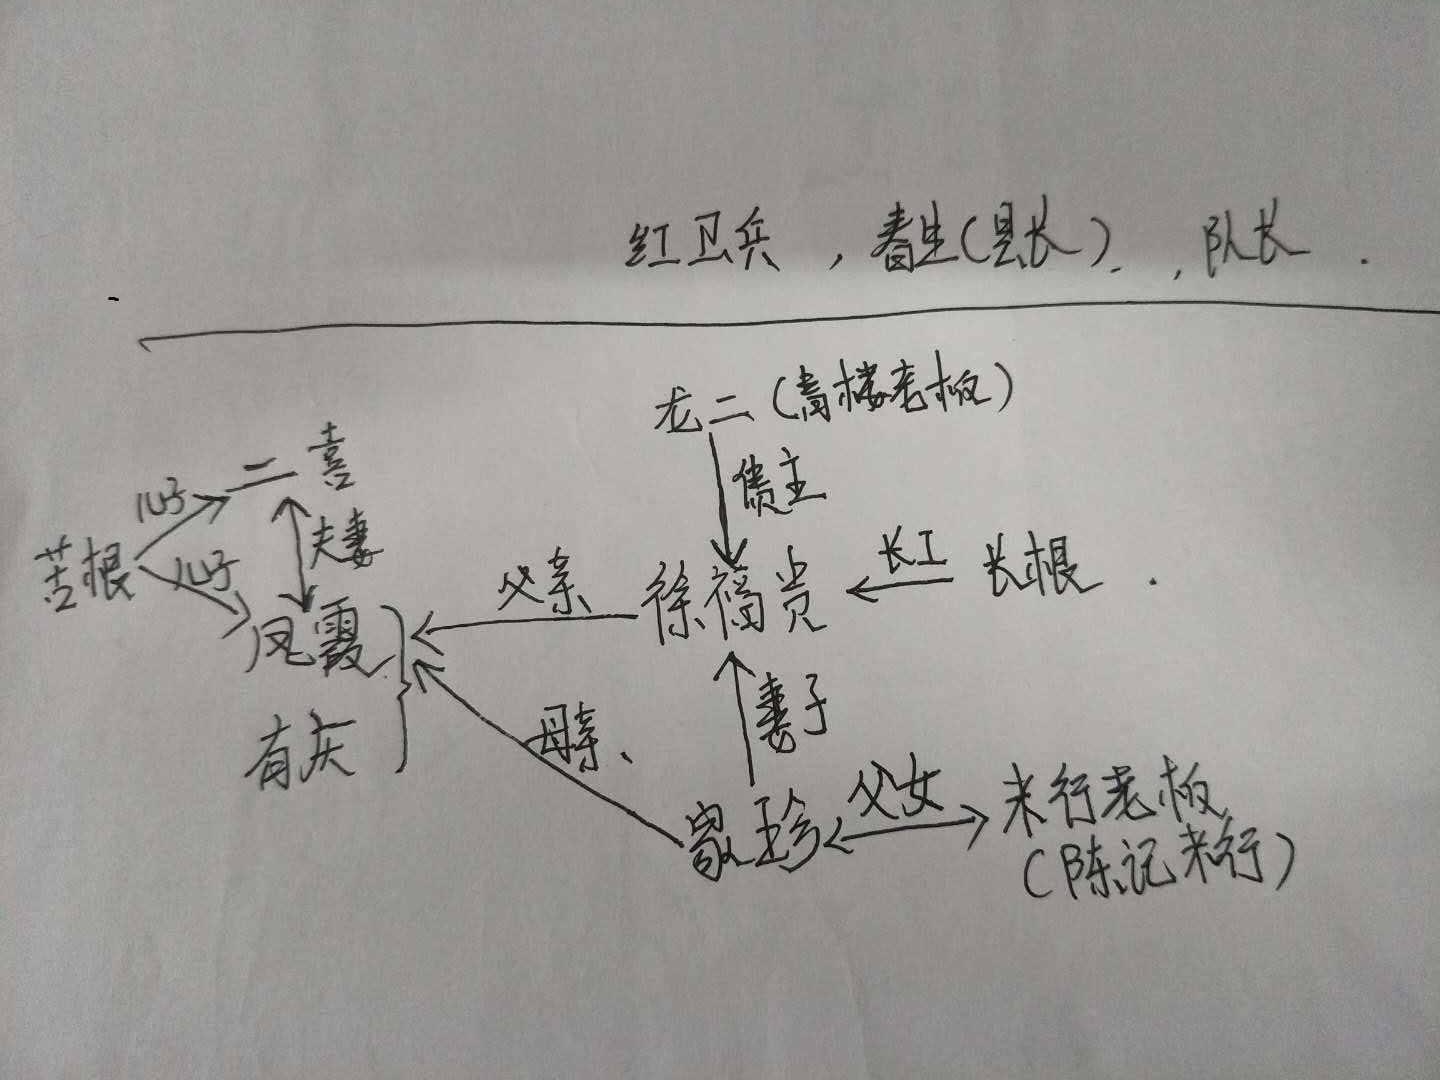 红卫兵，春生(县长).，队长.
龙二(青楼老板)
债主
二喜
儿子
夫妻
儿子
苦根
凤霞
有庆
父亲
徐福贵
长工
长根.
母亲、
妻子
家珍
父女
米行老板
(陈记米行)